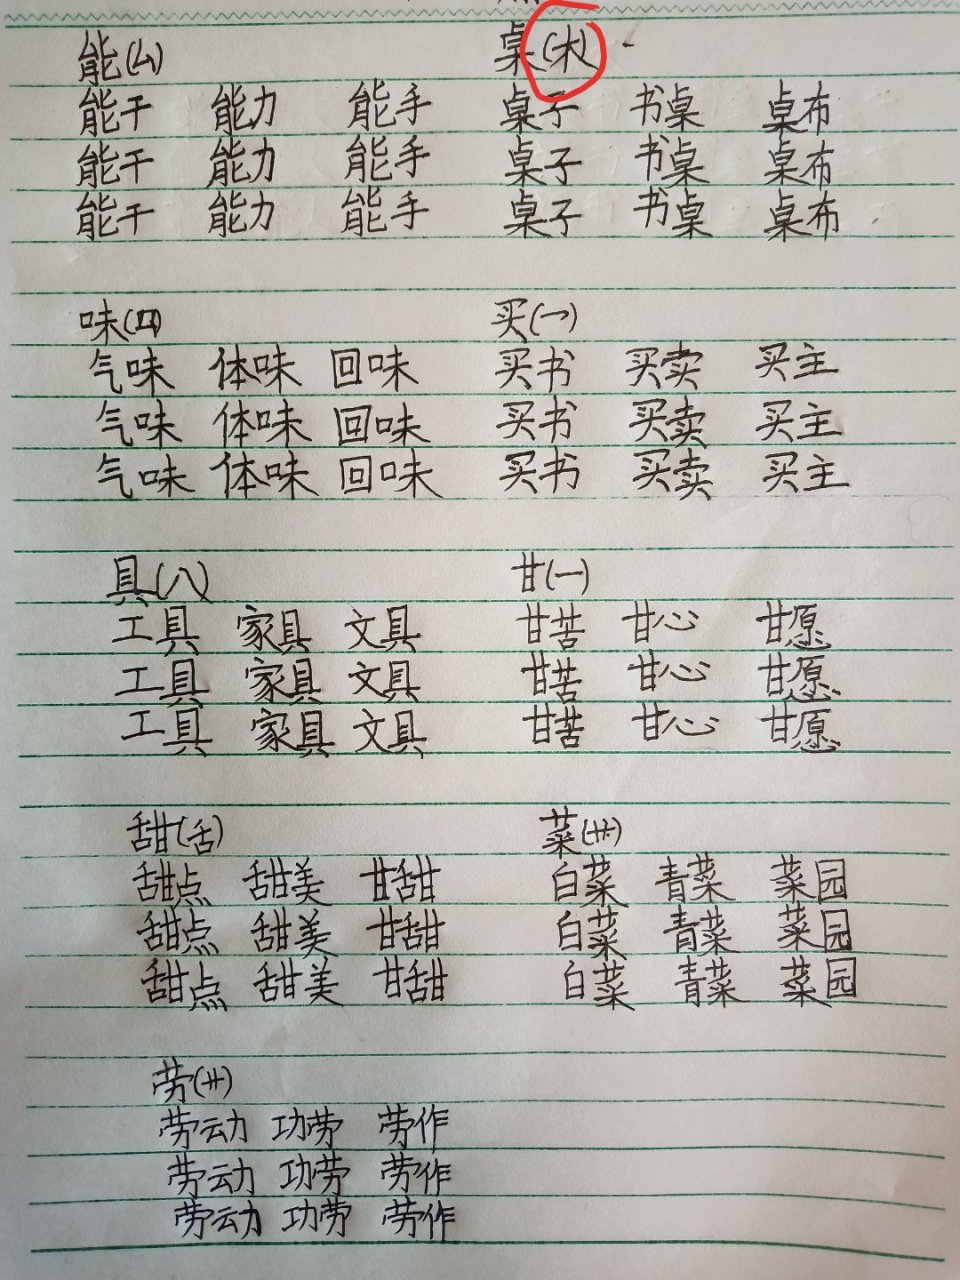 能(厶) 桌(木)
能干 能力 能手 桌子 书桌 桌布
能干 能力 能手 桌子 书桌 桌布
能干 能力 能手 桌子 书桌 桌布
味(口) 买(乛)
气味 体味 回味 买书 买卖 买主
气味 体味 回味 买书 买卖 买主
气味 体味 回味 买书 买卖 买主
具(八) 甘(一)
工具 家具 文具 甘苦 甘心 甘愿
工具 家具 文具 甘苦 甘心 甘愿
工具 家具 文具 甘苦 甘心 甘愿
甜(舌) 菜(艹)
甜点 甜美 甘甜 白菜 青菜 菜园
甜点 甜美 甘甜 白菜 青菜 菜园
甜点 甜美 甘甜 白菜 青菜 菜园
劳(艹)
劳动 功劳 劳作
劳动 功劳 劳作
劳动 功劳 劳作